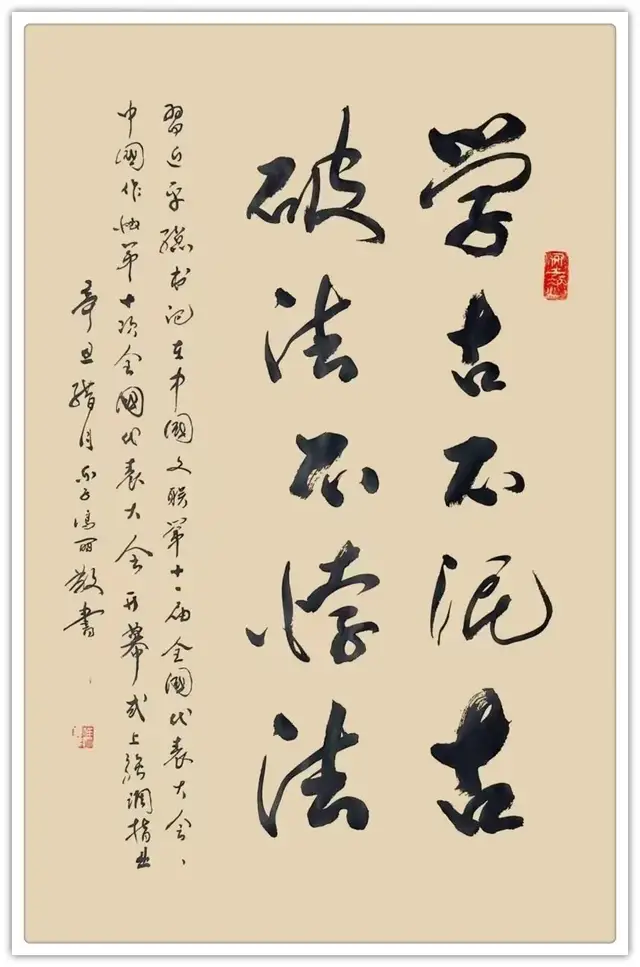 学古不泥古
破法不悖法
習近平總书记在中國文联第十一届全國代表大会、
中國作协第十次全國代表大会开幕式上強調指出
辛丑腊月冯丽敬書